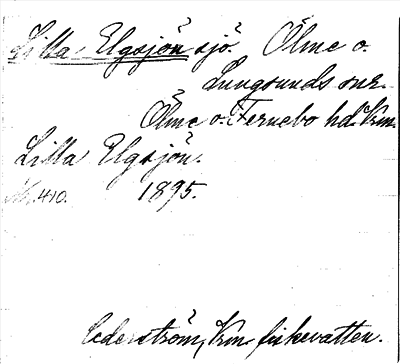 Lilla Elgsjön sjö. Ölme o.
Lungsunds snr.
Ölme o. Fernebo hd Vrm.
Lilla Elgsjön.
410. 1895.
Cederström, Vrm fiskevatten.